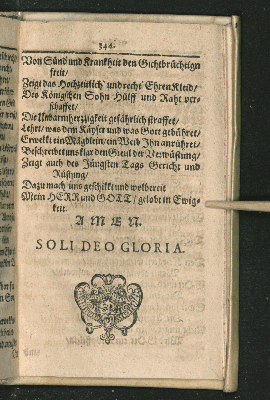 344.
Von Sünd und Kranckheit den Gichtbrüchtign
freit/
Zeigt das Hochzeitlich und recht EhrenKleid/
Des Königschen Sohn Hülff und Raht ver-
schaffet/
Die Unbarmhertzigkeit gefährlich straffet/
Lehrt/ was dem Käyser und was Gott gebühret/
Erwekkt ein Mägdlein/ ein Weib Ihn anrühret/
Beschreibet uns klar den Greul der Verwüstung/
Zeigt auch des Jüngsten Tags Gericht und
Rüstung/
Dazu mach uns geschikkt und wolbereit
Mein HERR und GOTT/ gelobt in Ewig-
keit.
AMEN.
SOLI DEO GLORIA.